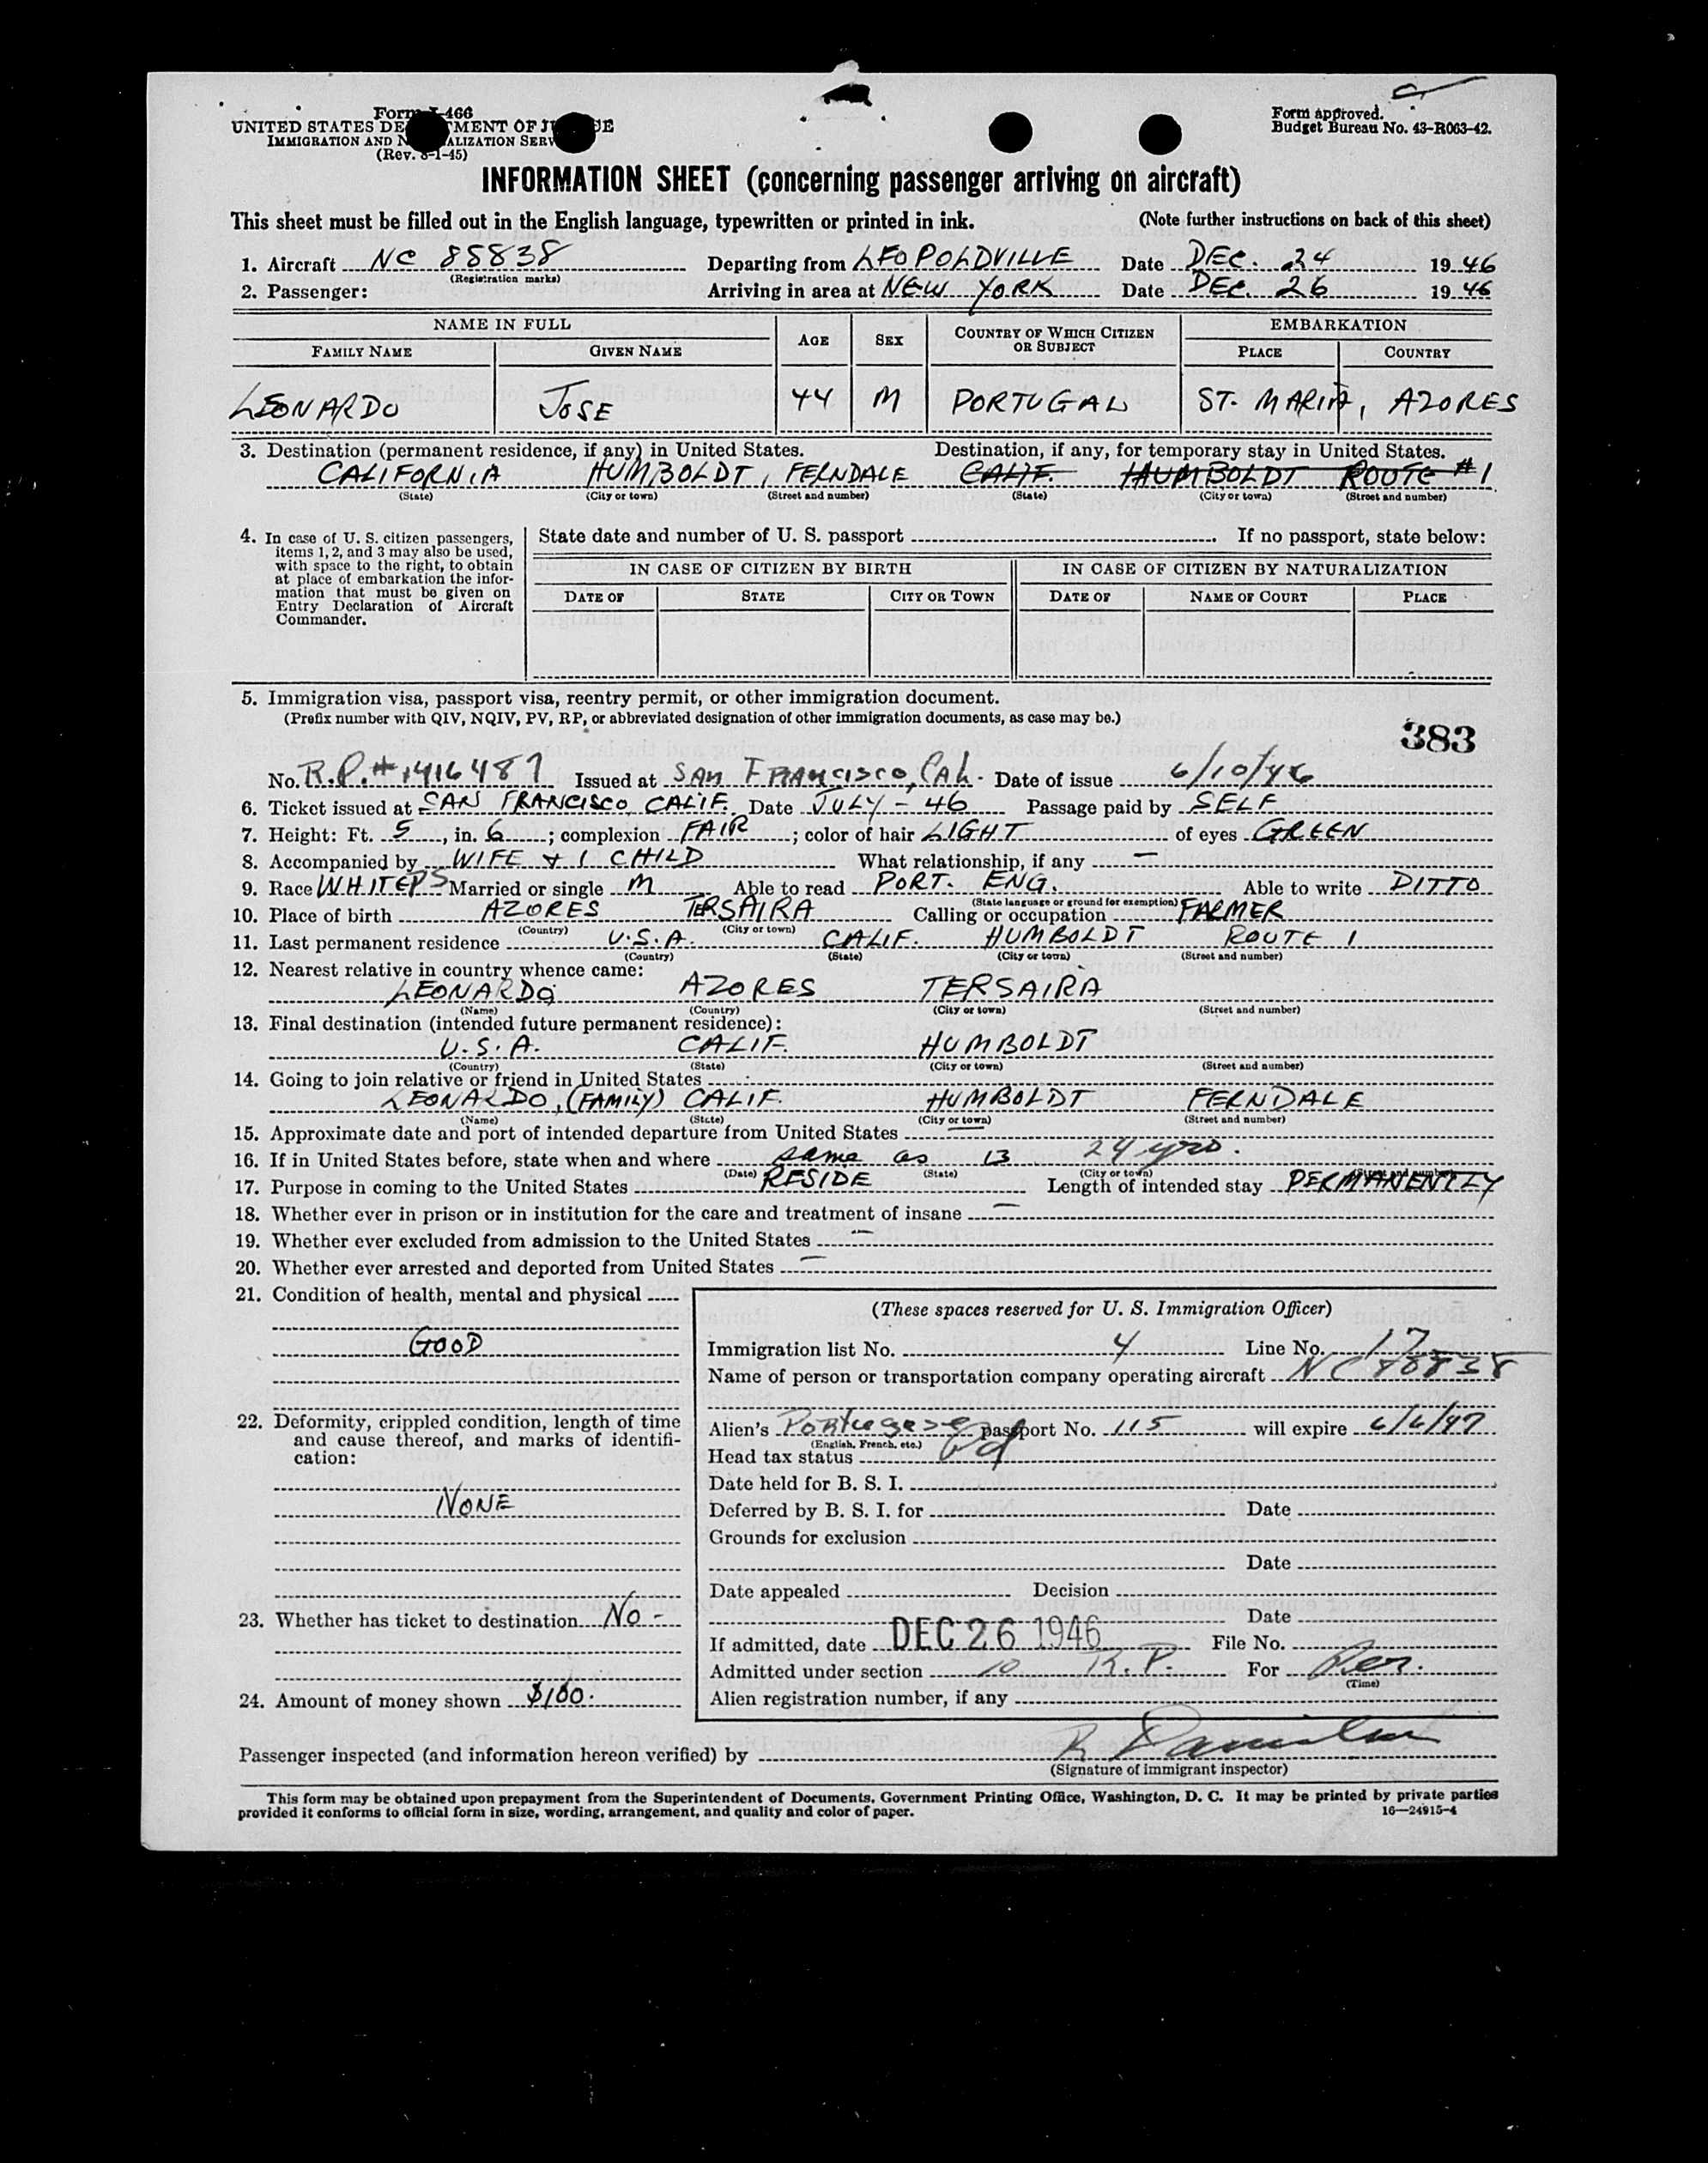 Form I-466
UNITED STATES DE MENT OF J E
IMMIGRATION AND N ALIZATION SERV
(Rev. 8-1-45)
Form approved.
Budget Bureau No. 43-R063-42.
INFORMATION SHEET (concerning passenger arriving on aircraft)
This sheet must be filled out in the English language, typewritten or printed in ink. (Note further instructions on back of this sheet)
1. Aircraft NC 88838 Departing from LEOPOLDVILLE Date DEC. 24 1946
(Registration marks)
2. Passenger: Arriving in area at NEW YORK Date DEC. 26 1946
NAME IN FULL AGE SEX COUNTRY OF WHICH CITIZEN OR SUBJECT EMBARKATION
FAMILY NAME GIVEN NAME PLACE COUNTRY
LEONARDO JOSE 44 M PORTUGAL ST. MARIA, AZORES
3. Destination (permanent residence, if any) in United States. Destination, if any, for temporary stay in United States.
CALIFORNIA HUMBOLDT, FERNDALE CALIF. HUMBOLDT ROUTE #1
(State) (City or town) (Street and number) (State) (City or town) (Street and number)
4. In case of U. S. citizen passengers,
items 1, 2, and 3 may also be used,
with space to the right, to obtain
at place of embarkation the infor-
mation that must be given on
Entry Declaration of Aircraft
Commander.
State date and number of U. S. passport . If no passport, state below:
IN CASE OF CITIZEN BY BIRTH IN CASE OF CITIZEN BY NATURALIZATION
DATE OF STATE CITY OR TOWN DATE OF NAME OF COURT PLACE
5. Immigration visa, passport visa, reentry permit, or other immigration document.
(Prefix number with QIV, NQIV, PV, RP, or abbreviated designation of other immigration documents, as case may be.)
383
No. R.P.# 1416487 Issued at SAN FRANCISCO, CAL. Date of issue 6/10/46
6. Ticket issued at SAN FRANCISCO, CALIF. Date JULY - 46 Passage paid by SELF
7. Height: Ft. 5, in. 6; complexion FAIR; color of hair LIGHT of eyes GREEN
8. Accompanied by WIFE & 1 CHILD What relationship, if any —
9. Race WHITE PS Married or single M Able to read PORT. ENG. Able to write DITTO
(State language or ground for exemption)
10. Place of birth AZORES TERSAIRA Calling or occupation FARMER
(Country) (City or town)
11. Last permanent residence U.S.A. CALIF. HUMBOLDT ROUTE 1
(Country) (State) (City or town) (Street and number)
12. Nearest relative in country whence came:
LEONARDO AZORES TERSAIRA
(Name) (Country) (City or town) (Street and number)
13. Final destination (intended future permanent residence):
U.S.A. CALIF. HUMBOLDT
(Country) (State) (City or town) (Street and number)
14. Going to join relative or friend in United States
LEONARDO, (FAMILY) CALIF. HUMBOLDT FERNDALE
(Name) (State) (City or town) (Street and number)
15. Approximate date and port of intended departure from United States
16. If in United States before, state when and where same as 13 24 yrs.
(Date) (State) (City or town) (Street and number)
17. Purpose in coming to the United States RESIDE Length of intended stay PERMANENTLY
18. Whether ever in prison or in institution for the care and treatment of insane —
19. Whether ever excluded from admission to the United States —
20. Whether ever arrested and deported from United States —
21. Condition of health, mental and physical
GOOD
22. Deformity, crippled condition, length of time
and cause thereof, and marks of identifi-
cation:
NONE
23. Whether has ticket to destination NO -
24. Amount of money shown $100.
(These spaces reserved for U. S. Immigration Officer)
Immigration list No. 4 Line No. 17
Name of person or transportation company operating aircraft NC 88838
Alien's Portugese passport No. 115 will expire 6/6/47
(English, French, etc.)
Head tax status Pd
Date held for B. S. I.
Deferred by B. S. I. for Date
Grounds for exclusion
Date
Date appealed Decision
Date
If admitted, date DEC 26 1946 File No.
Admitted under section 10 R.P. For Per.
(Time)
Alien registration number, if any
Passenger inspected (and information hereon verified) by
(Signature of immigrant inspector)
This form may be obtained upon prepayment from the Superintendent of Documents, Government Printing Office, Washington, D. C. It may be printed by private parties
provided it conforms to official form in size, wording, arrangement, and quality and color of paper. 16—24915-4